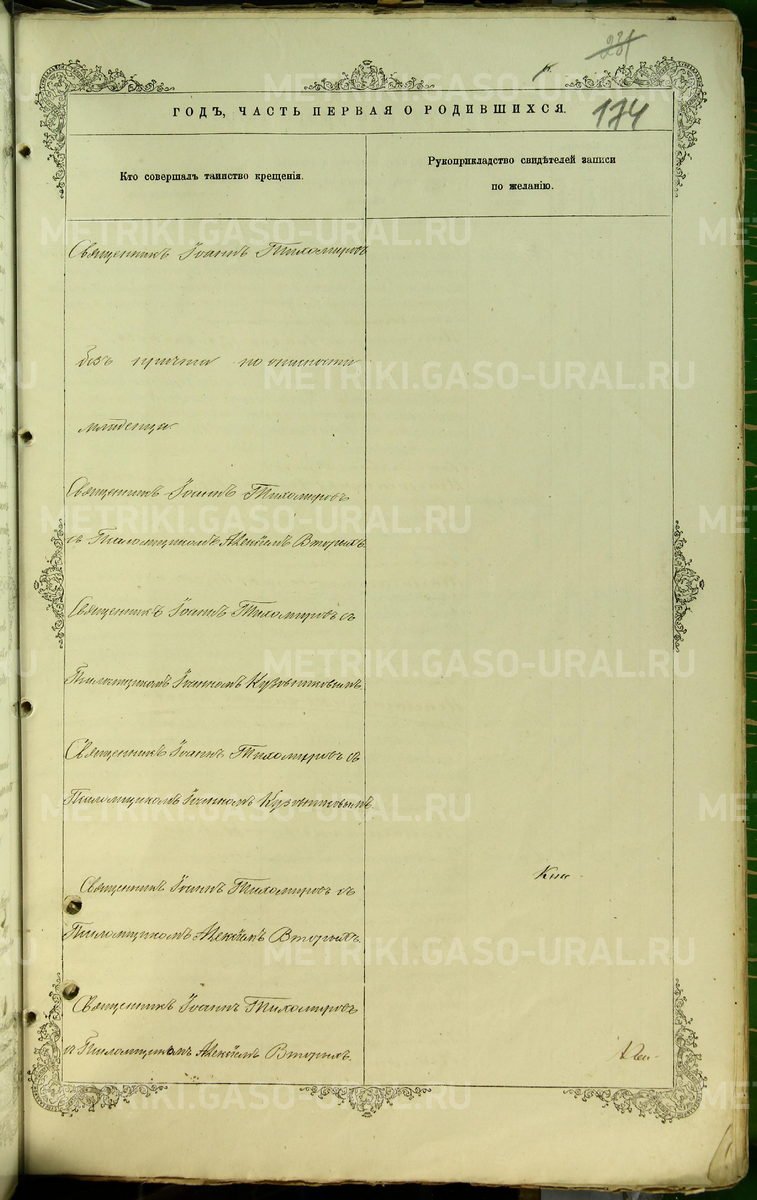 231
174
ГОДЪ, ЧАСТЬ ПЕРВАЯ О РОДИВШИХСЯ.
Кто совершалъ таинство крещенія.
Рукоприкладство свидѣтелей записи
по желанію.
METRIKI.GASO-URAL.RU
Священникъ Іоаннъ Тихомировъ
безъ причта по опасности
младенца
Священникъ Іоаннъ Тихомировъ
съ Псаломщикомъ Вторыхъ
Священникъ Іоаннъ Тихомировъ съ
Псаломщикомъ Іоанномъ
Священникъ Іоаннъ Тихомировъ съ
Псаломщикомъ Іоанномъ
Священникъ Іоаннъ Тихомировъ съ
Псаломщикомъ Вторыхъ
Священникъ Іоаннъ Тихомировъ
съ Псаломщикомъ Вторыхъ